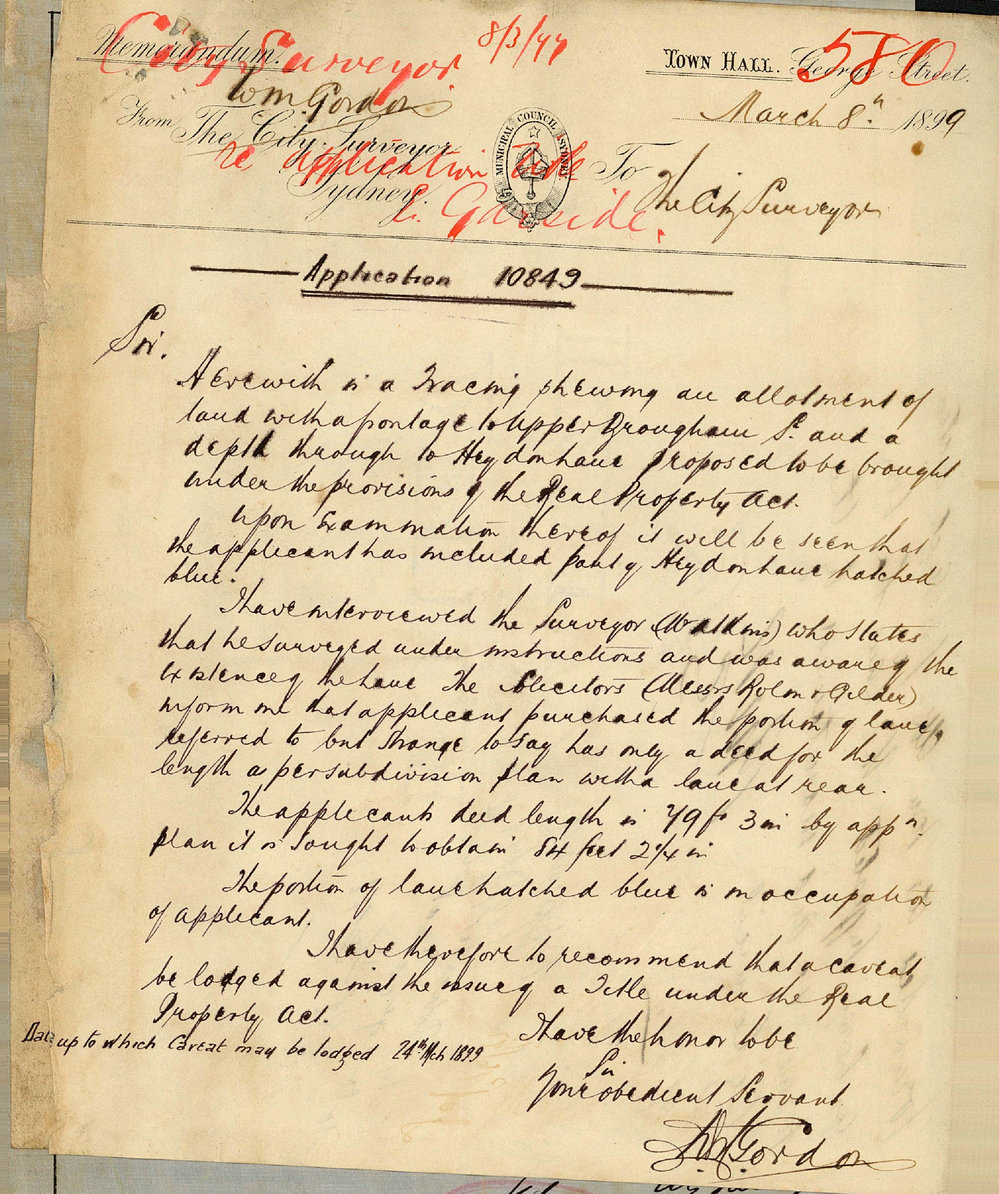 City Surveyor 8/3/99 580
Memorandum.
TOWN HALL. George Street.
Wm. Gordon
March 8th 1899
From The City Surveyor
Sydney.
MUNICIPAL COUNCIL SYDNEY
To The City Surveyor
re application Title
E. Garside.
Application 10849
Sir.
Herewith is a Tracing shewing an allotment of
land with a frontage to Upper Brougham St. and a
depth through to Heydon lane proposed to be brought
under the provisions of the Real Property Act.
Upon Examination thereof it will be seen that
the applicant has included part of Heydon lane hatched
blue.
I have interviewed the Surveyor (Watkins) who States
that he surveyed under instructions and was aware of the
existence of the lane The Solicitors (Messrs Rolin & Gilder)
inform me that applicant purchased the portion of lane
referred to but strange to say has only a deed for the
length as per subdivision plan with a lane at rear.
The applicants deed length is 79 ft 3 in by appn.
plan it is sought to obtain 84 feet 2 1/4 in
The portion of lane hatched blue is in occupation
of applicant.
I have therefore to recommend that a caveat
be lodged against the issue of a Title under the Real
Property Act.
Date up to which Caveat may be lodged 24th Mch 1899
I have the honor to be
Sir
Your obedient Servant
Wm Gordon